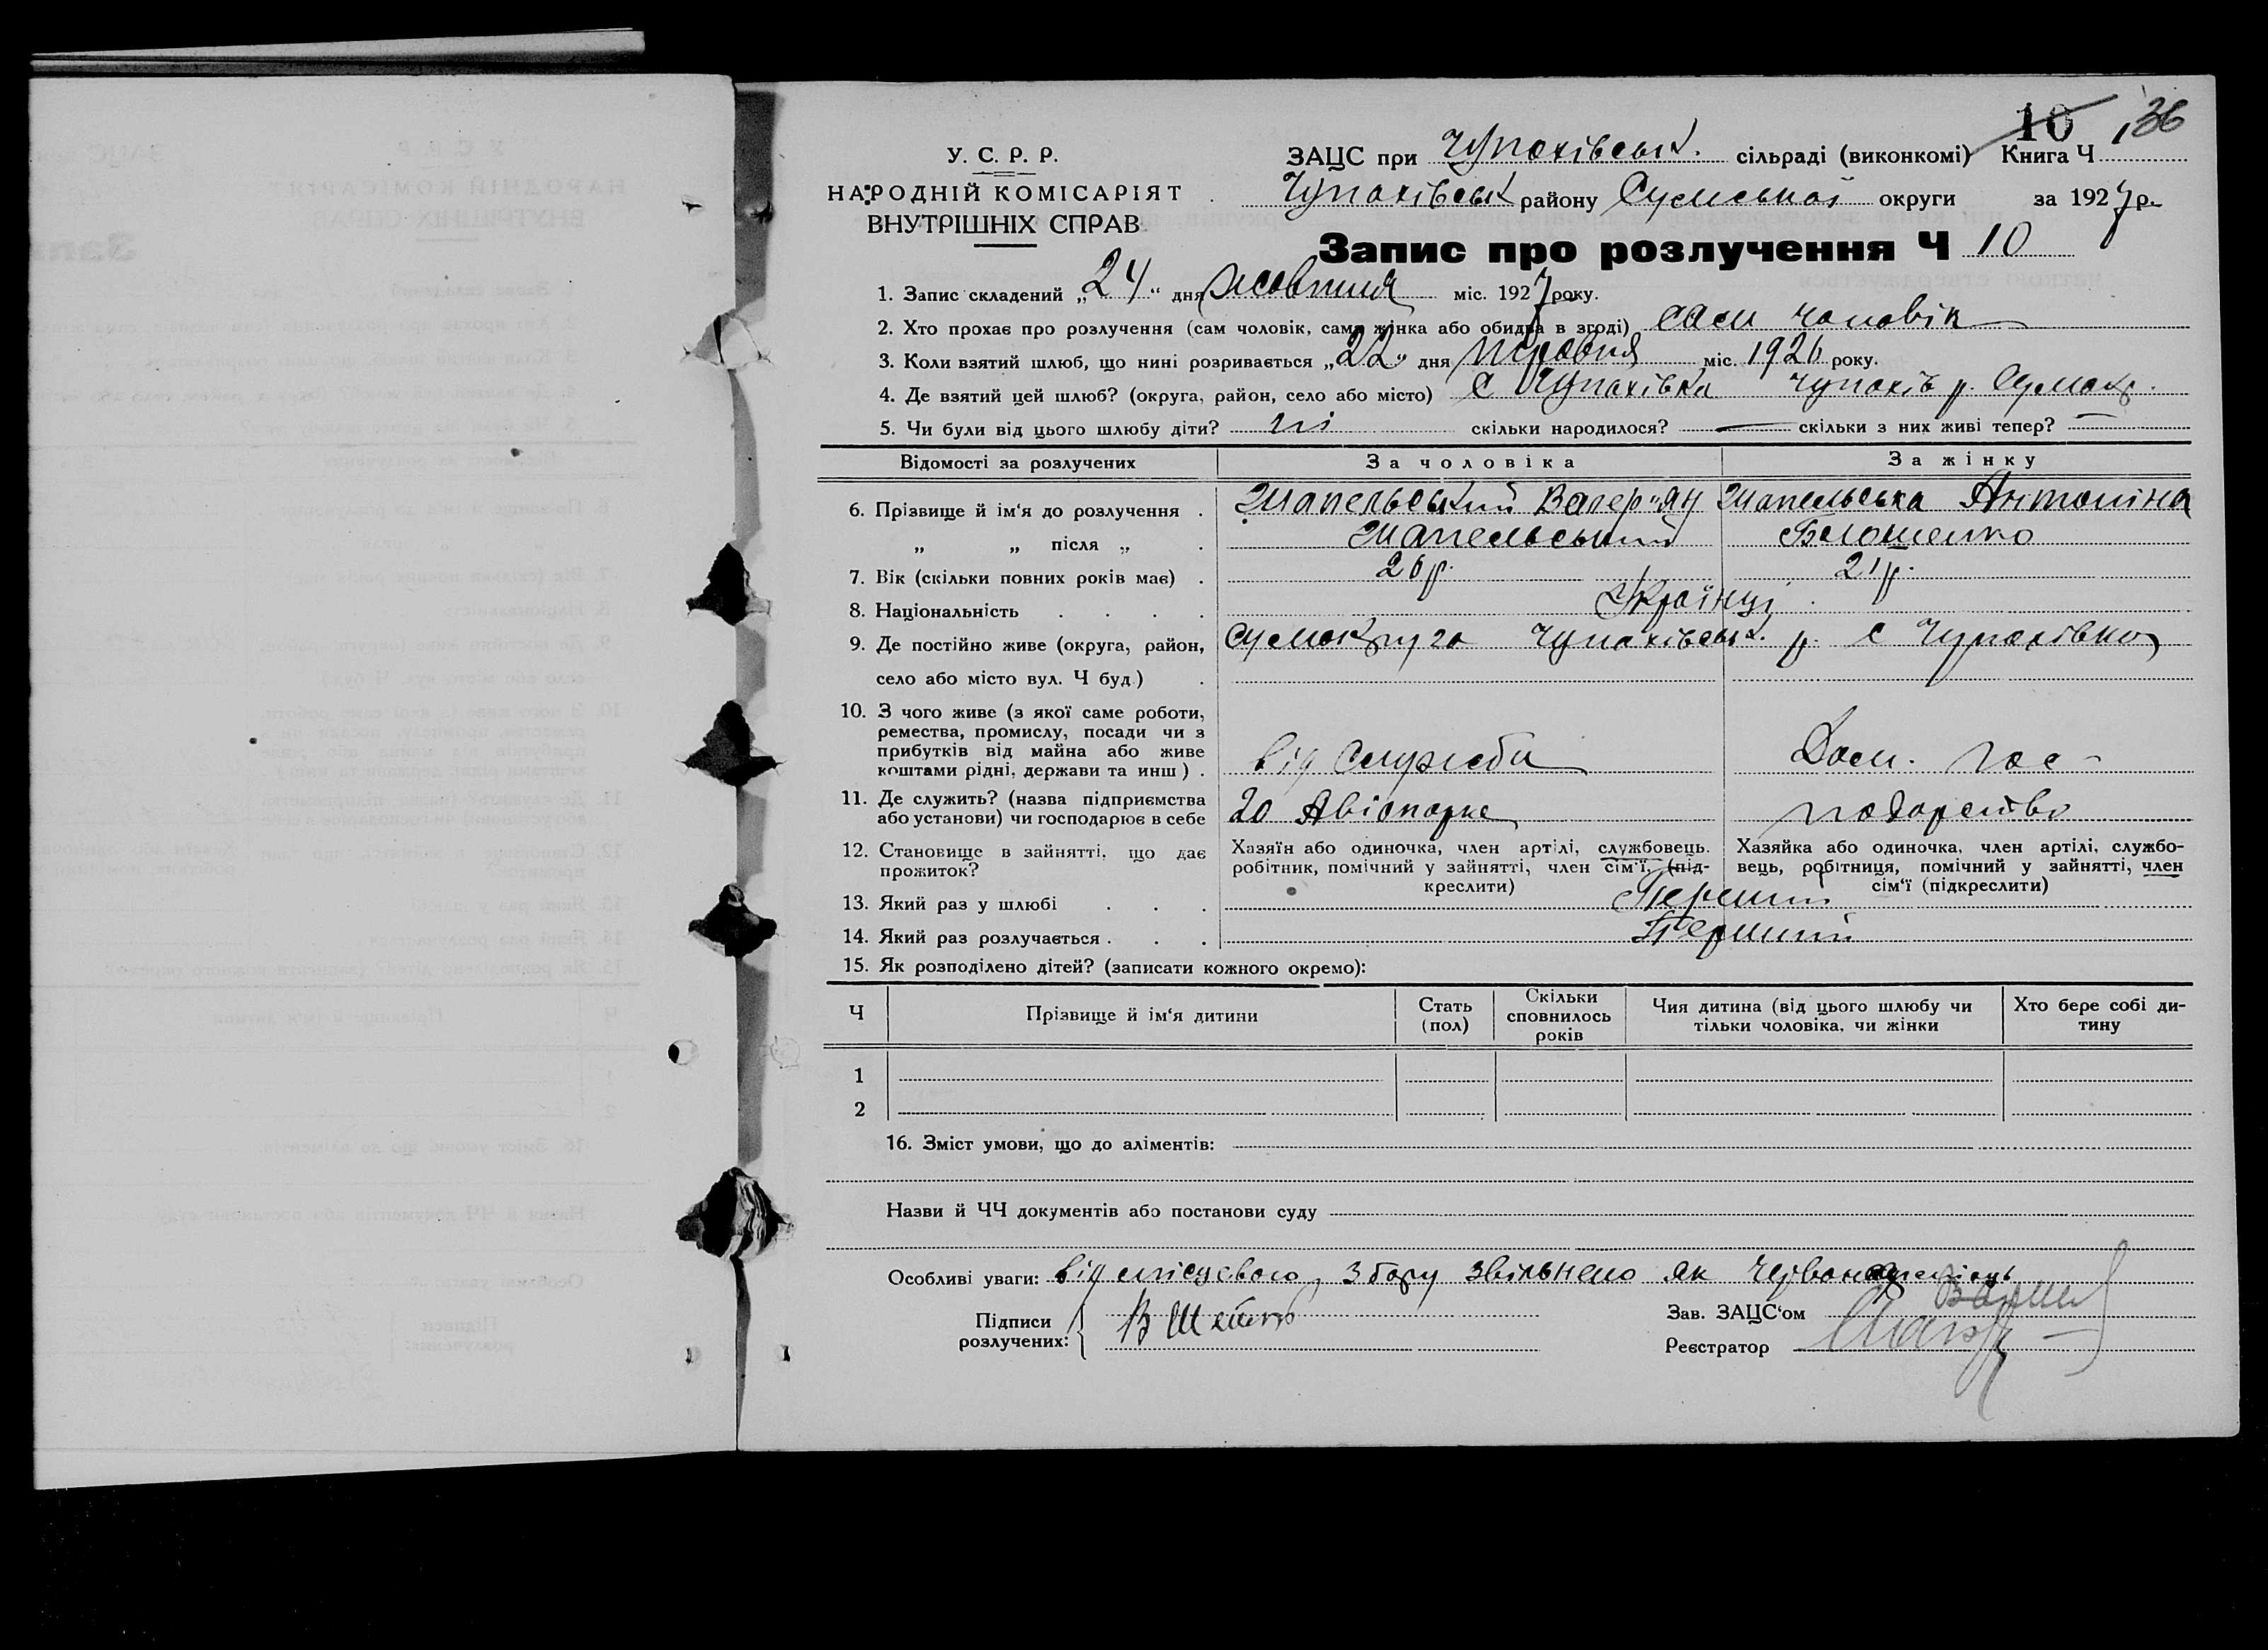 10 136
У. С. Р. Р.
НАРОДНІЙ КОМІСАРІЯТ
ВНУТРІШНІХ СПРАВ
ЗАЦС при Чупахівськ. сільраді (виконкомі) Книга Ч
Чупахівськ району Сумської округи за 1927 р.
Запис про розлучення Ч 10
1. Запис складений „24“ дня жовтня міс. 1927 року.
2. Хто прохає про розлучення (сам чоловік, сама жінка або обидва в згоді) сам чоловік
3. Коли взятий шлюб, що нині розривається „22“ дня травня міс. 1926 року.
4. Де взятий цей шлюб? (округа, район, село або місто) с Чупахівка Чупахів р. Сумокр.
5. Чи були від цього шлюбу діти? ні скільки народилося? — скільки з них живі тепер? —
Відомості за розлучених За чоловіка За жінку
6. Прізвище й ім‘я до розлучення . Шапельський Валер"ян Шапельська Антоніна
„ „ після „ . Шапельський Білошенко
7. Вік (скільки повних років має) . 26 р. 21 р.
8. Національність . . . . Українці
9. Де постійно живе (округа, район, Сумокруга Чупахівськ. р. с Чупахівка
село або місто вул. Ч буд.) .
10. З чого живе (з якої саме роботи,
ремества, промислу, посади чи з
прибутків від майна або живе
коштами рідні, держави та инш) . від служби Дом. гос-
11. Де служить? (назва підприємства
або установи) чи господарює в себе 20 Авіопарк подарство
12. Становище в зайнятті, що дає
прожиток?
Хазяїн або одиночка, член артілі, службовець.
робітник, помічний у зайнятті, член сім‘ї, (під-
креслити)
Хазяйка або одиночка, член артілі, службо-
вець, робітниця, помічний у зайнятті, член
сім‘ї (підкреслити)
13. Який раз у шлюбі . . . Перший
14. Який раз розлучається . . . Перший
15. Як розподілено дітей? (записати кожного окремо):
Ч Прізвище й ім‘я дитини Стать (пол) Скільки сповнилось років Чия дитина (від цього шлюбу чи тільки чоловіка, чи жінки Хто бере собі ди-тину
1
2
16. Зміст умови, що до аліментів:
Назви й ЧЧ документів або постанови суду
Особливі уваги: від місцевого збору звільнено як червоноармієць
Підписи
розлучених:
Зав. ЗАЦС‘ом
Реєстратор